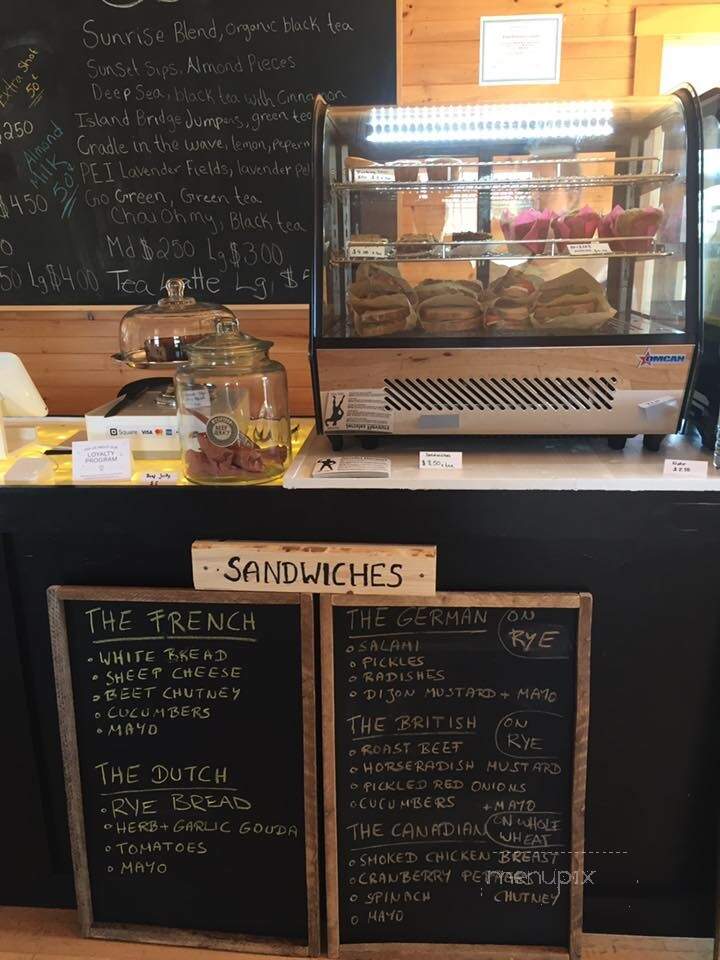 Sunrise Blend, organic black tea
Sunset Sips, Almond Pieces
Deep Sea, black tea with Cinnamon
Island Bridge Jumpers, green tea
Cradle in the wave, lemon, peperm
PEI Lavender Fields, lavender pe
Go Green, Green tea
Chai Oh my, Black tea
Md $250 Lg $300
Tea Latte Lg, $
Extra Shot
50¢
Almond
Milk
50¢
250
$450
50 Lg $400
OMCAN
Square VISA
LOYALTY
PROGRAM
BEEF
JERKY
Beef Jerky
Sandwiches
$ 8.50
Water
$ 2.50
SANDWICHES
THE FRENCH
• WHITE BREAD
• SHEEP CHEESE
• BEET CHUTNEY
• CUCUMBERS
• MAYO
THE DUTCH
• RYE BREAD
• HERB + GARLIC GOUDA
• TOMATOES
• MAYO
THE GERMAN ON RYE
• SALAMI
• PICKLES
• RADISHES
• DIJON MUSTARD + MAYO
THE BRITISH ON RYE
• ROAST BEEF
• HORSERADISH MUSTARD
• PICKLED RED ONIONS
• CUCUMBERS + MAYO
THE CANADIAN ON WHOLE WHEAT
• SMOKED CHICKEN BREAST
• CRANBERRY
• SPINACH CHUTNEY
• MAYO
menupix